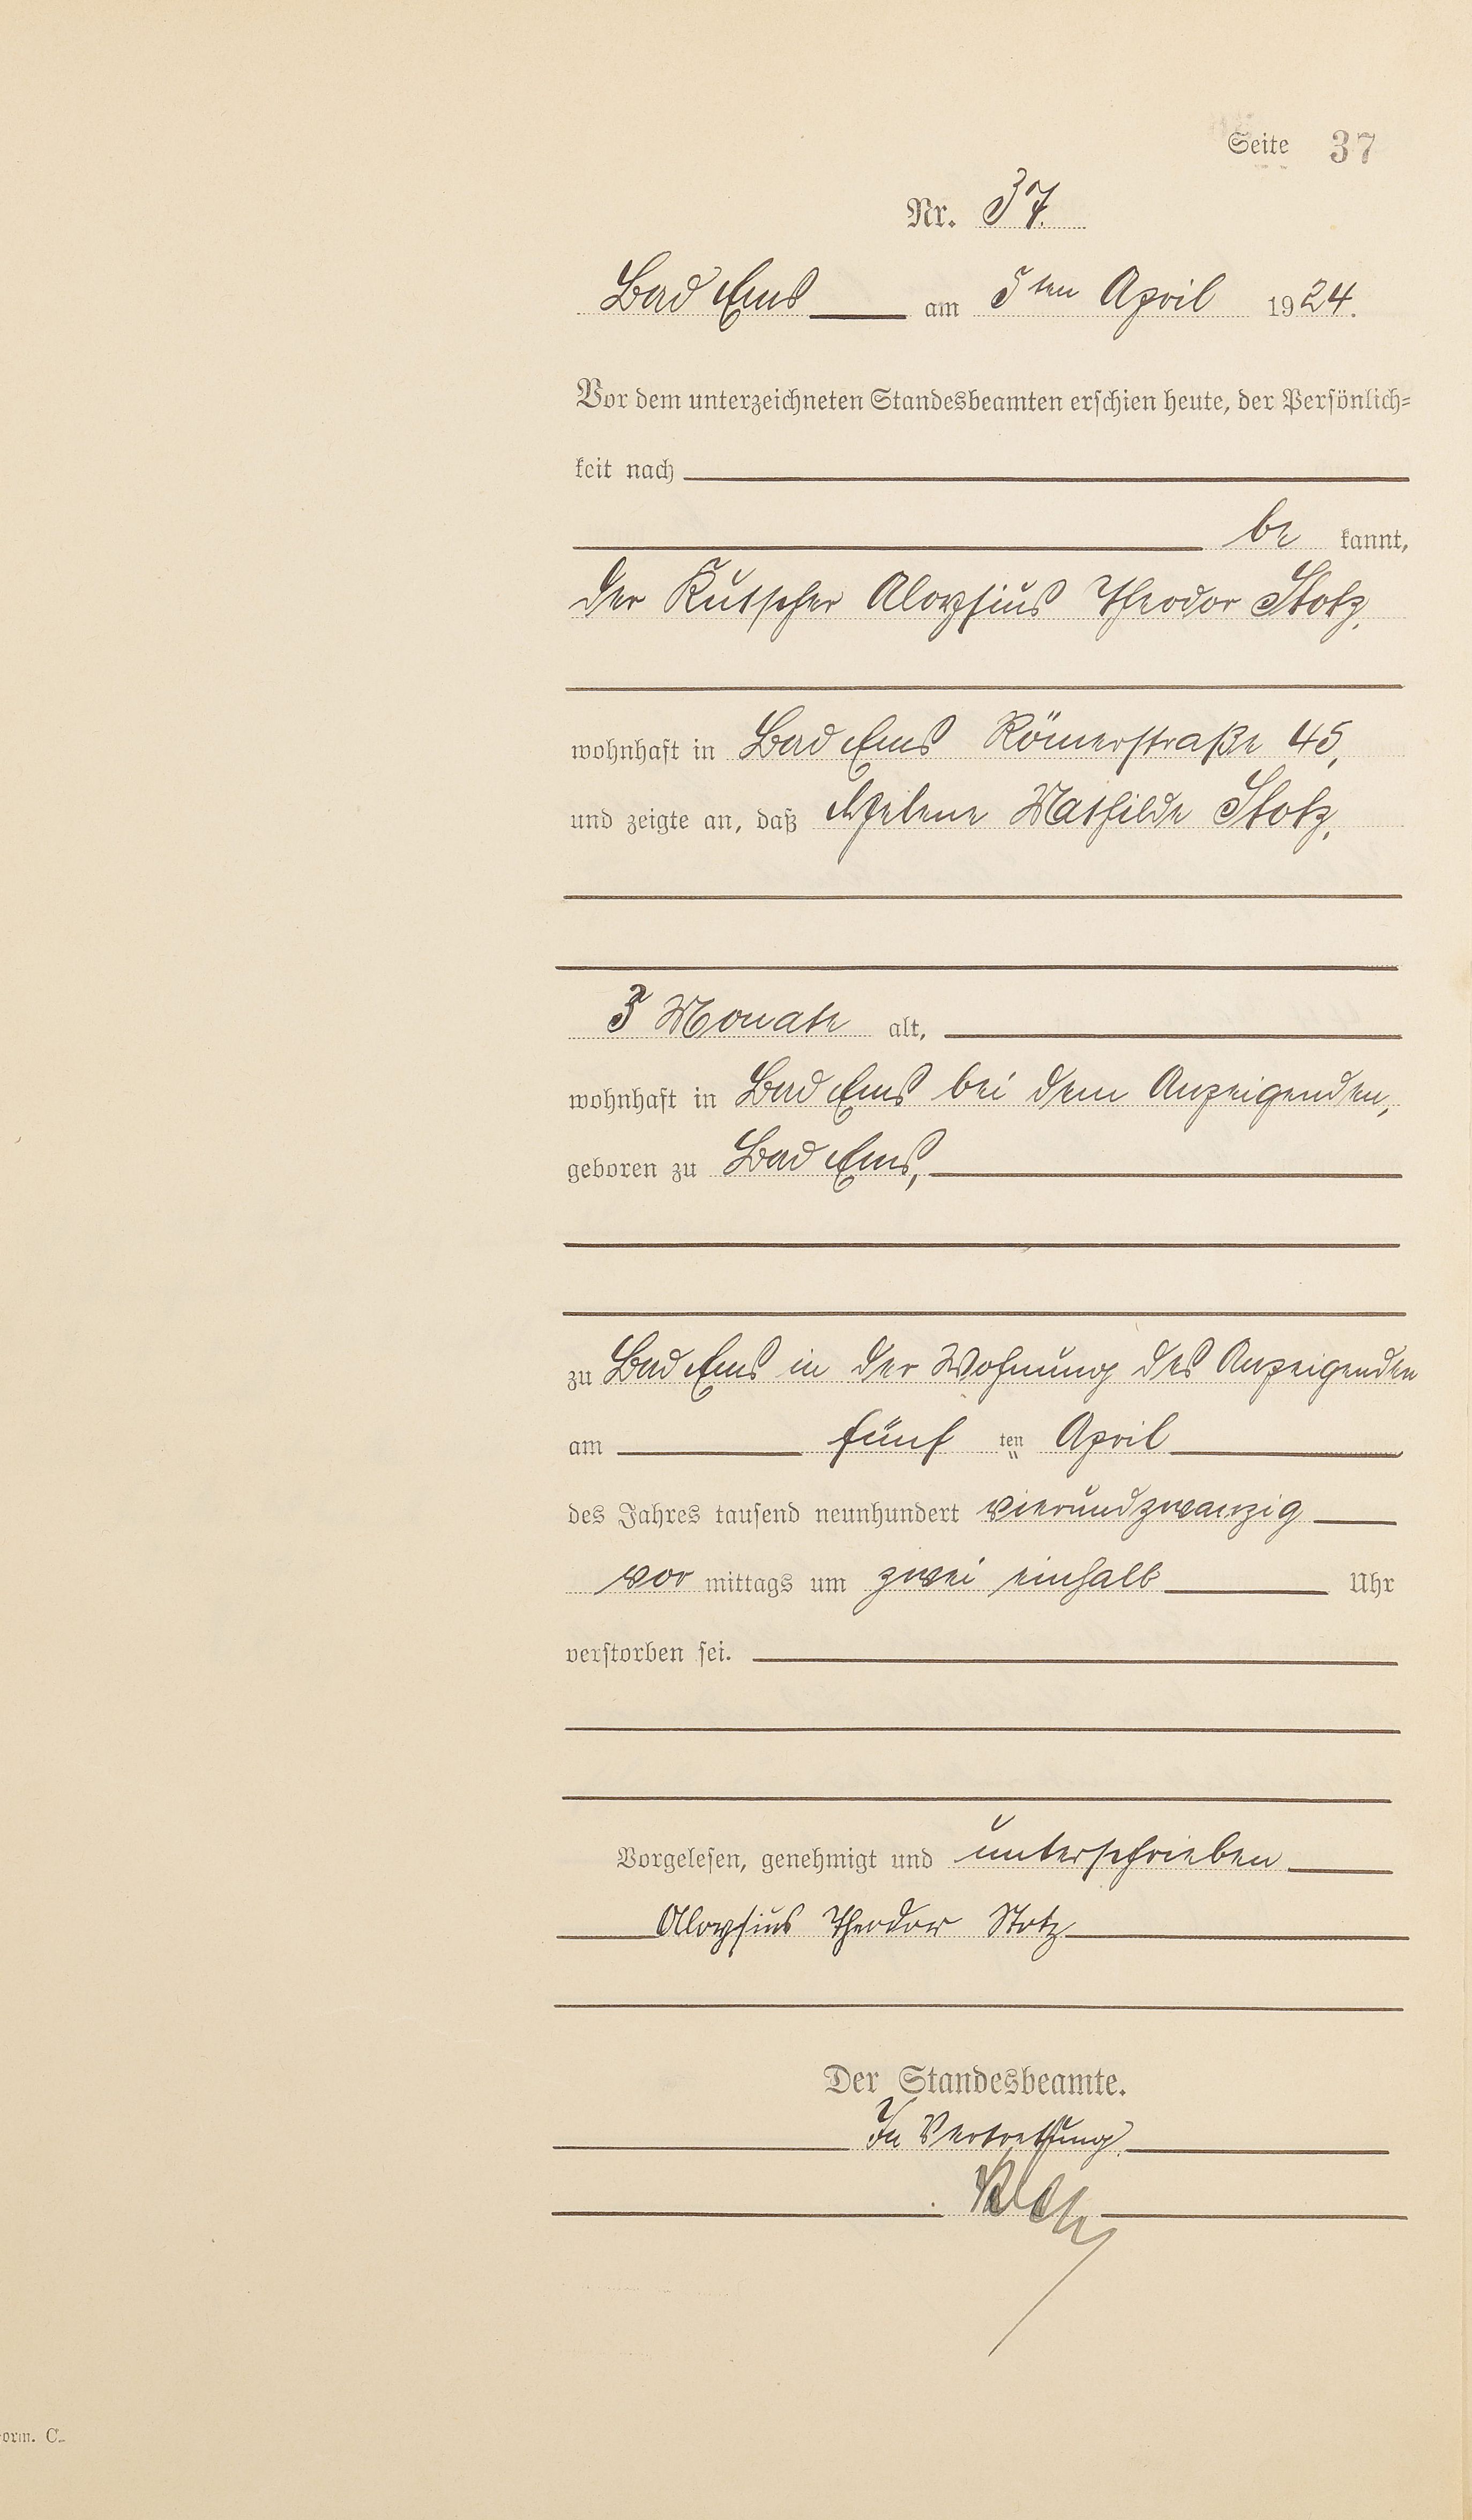 Seite 37
Nr. 37.
Bad Ems am 5ten April 1924.
Vor dem unterzeichneten Standesbeamten erschien heute, der Persönlich=
keit nach
be kannt,
der Kutscher Aloysius Theodor Stotz,
wohnhaft in Bad Ems Römerstraße 45,
und zeigte an, daß Helene Mathilde Stotz,
3 Monate alt,
wohnhaft in Bad Ems bei dem Anzeigenden,
geboren zu Bad Ems,
zu Bad Ems in der Wohnung des Anzeigenden
am fünf ten April
des Jahres tausend neunhundert vierundzwanzig
vor mittags um zwei einhalb Uhr
verstorben sei.
Vorgelesen, genehmigt und unterschrieben
Aloysius Theodor Stotz
Der Standesbeamte.
In Vertretung
orm. C.